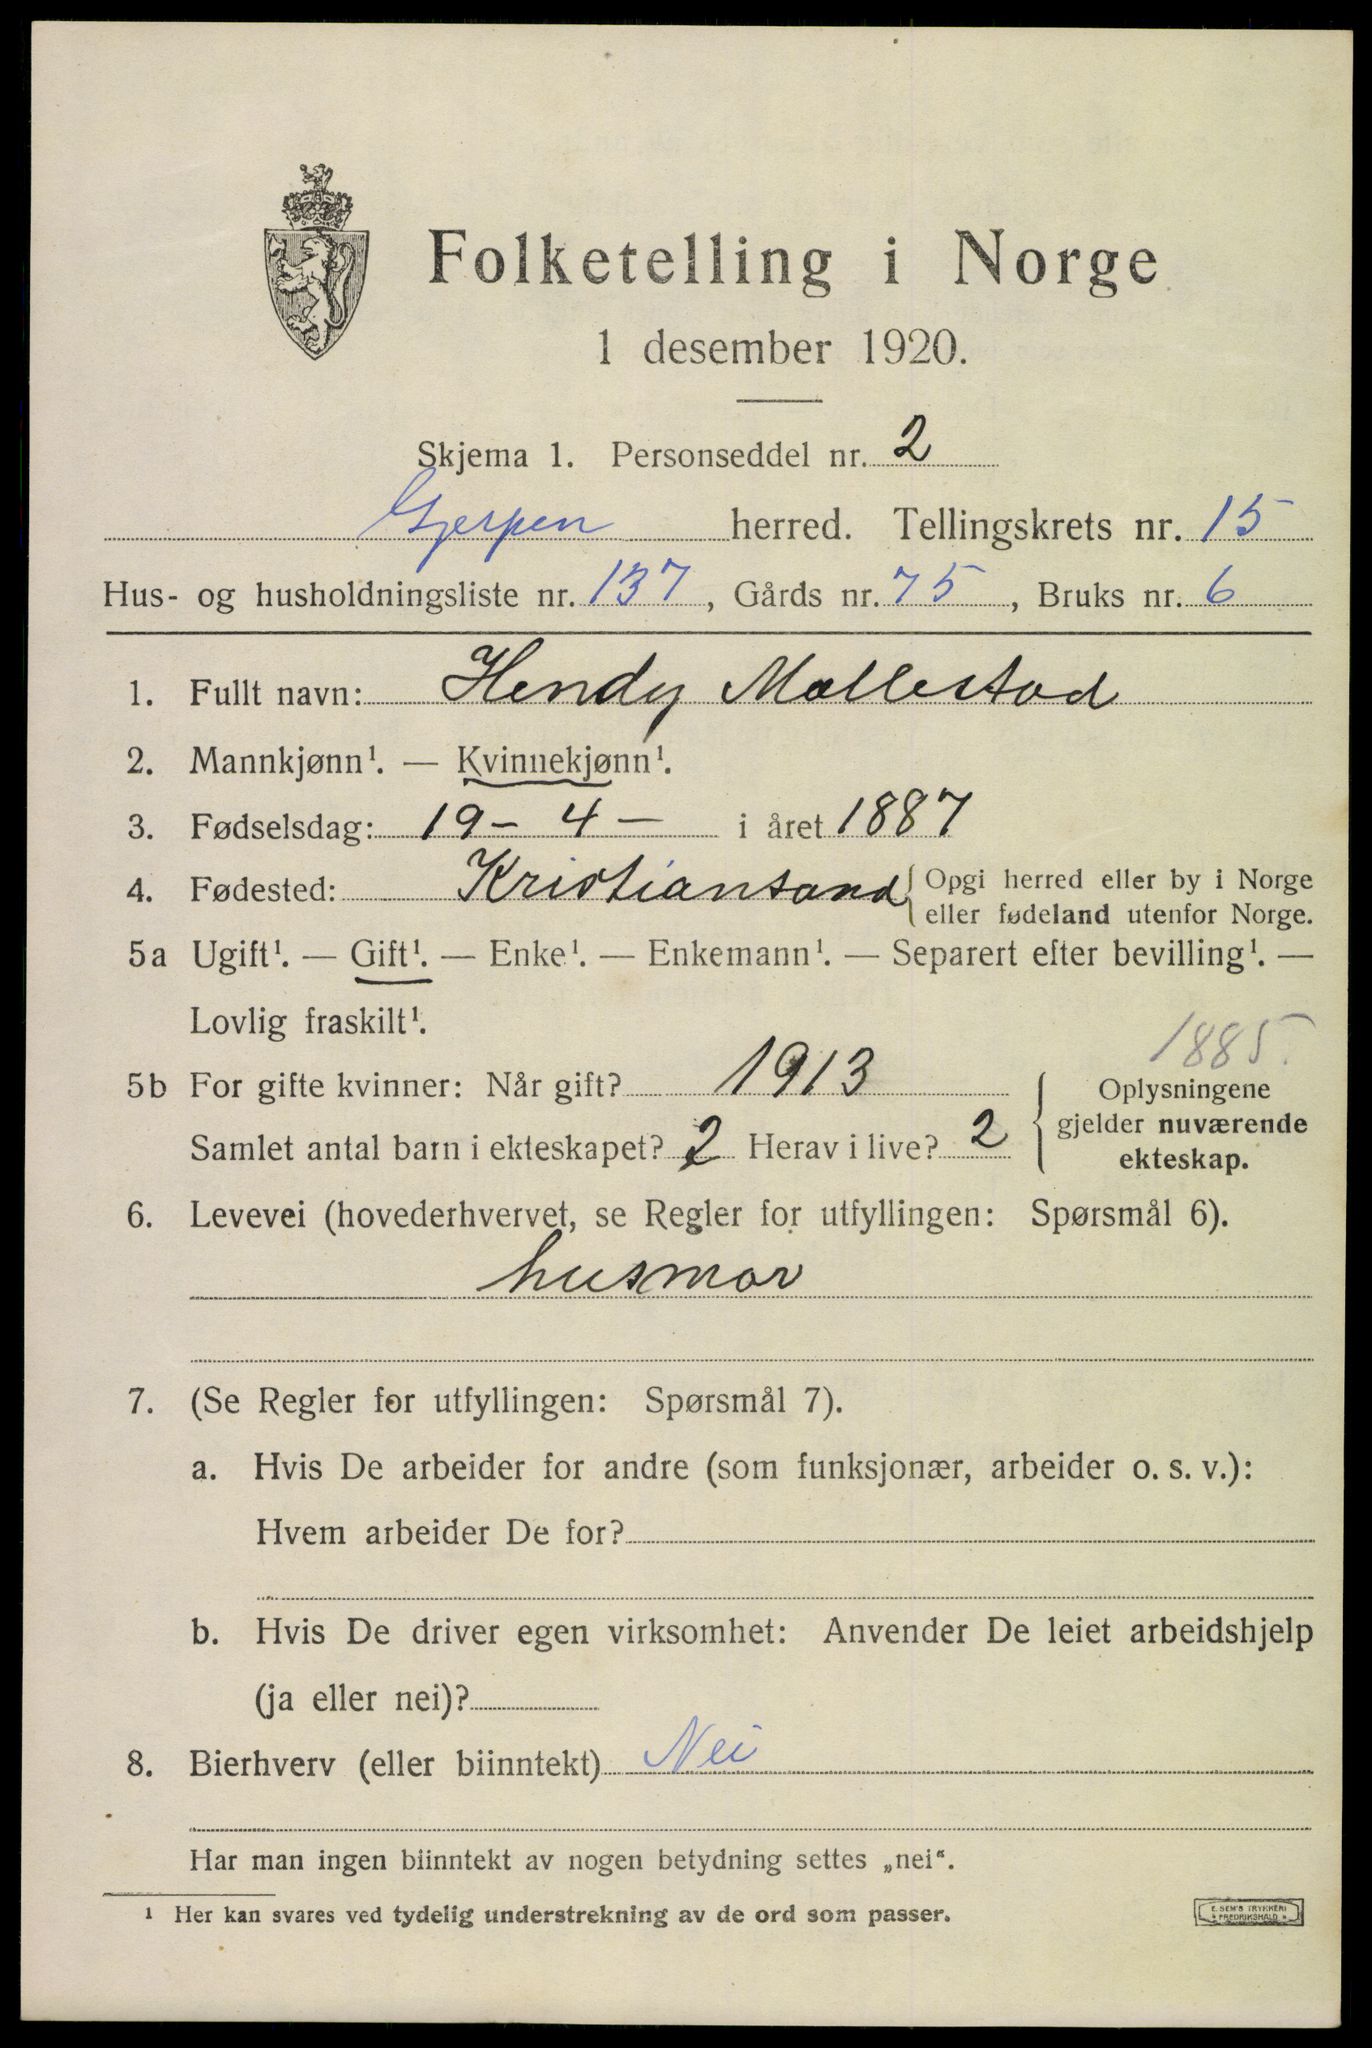 Folketelling i Norge
1 desember 1920.
Skjema 1. Personseddel nr. 2
Gjerpen herred. Tellingskrets nr. 15
Hus- og husholdningsliste nr. 137, Gårds nr. 75, Bruks nr. 6
1. Fullt navn: Hendy Mællestad
2. Mannkjønn¹. — Kvinnekjønn¹.
3. Fødselsdag: 19 – 4 – i året 1887
4. Fødested: Kristiansand { Opgi herred eller by i Norge
eller fødeland utenfor Norge.
5a Ugift¹. — Gift¹. — Enke¹. — Enkemann¹. — Separert efter bevilling¹. —
Lovlig fraskilt¹.
1885.
5b For gifte kvinner: Når gift? 1913
Samlet antal barn i ekteskapet? 2 Herav i live? 2
Oplysningene
gjelder nuværende
ekteskap.
6. Levevei (hovederhvervet, se Regler for utfyllingen: Spørsmål 6).
husmor
7. (Se Regler for utfyllingen: Spørsmål 7).
a. Hvis De arbeider for andre (som funksjonær, arbeider o. s. v.):
Hvem arbeider De for?
b. Hvis De driver egen virksomhet: Anvender De leiet arbeidshjelp
(ja eller nei)?
8. Bierhverv (eller biinntekt) Nei
Har man ingen biinntekt av nogen betydning settes „nei“.
¹ Her kan svares ved tydelig understrekning av de ord som passer.
E. SEM'S TRYKKERI
FREDRIKSHALD